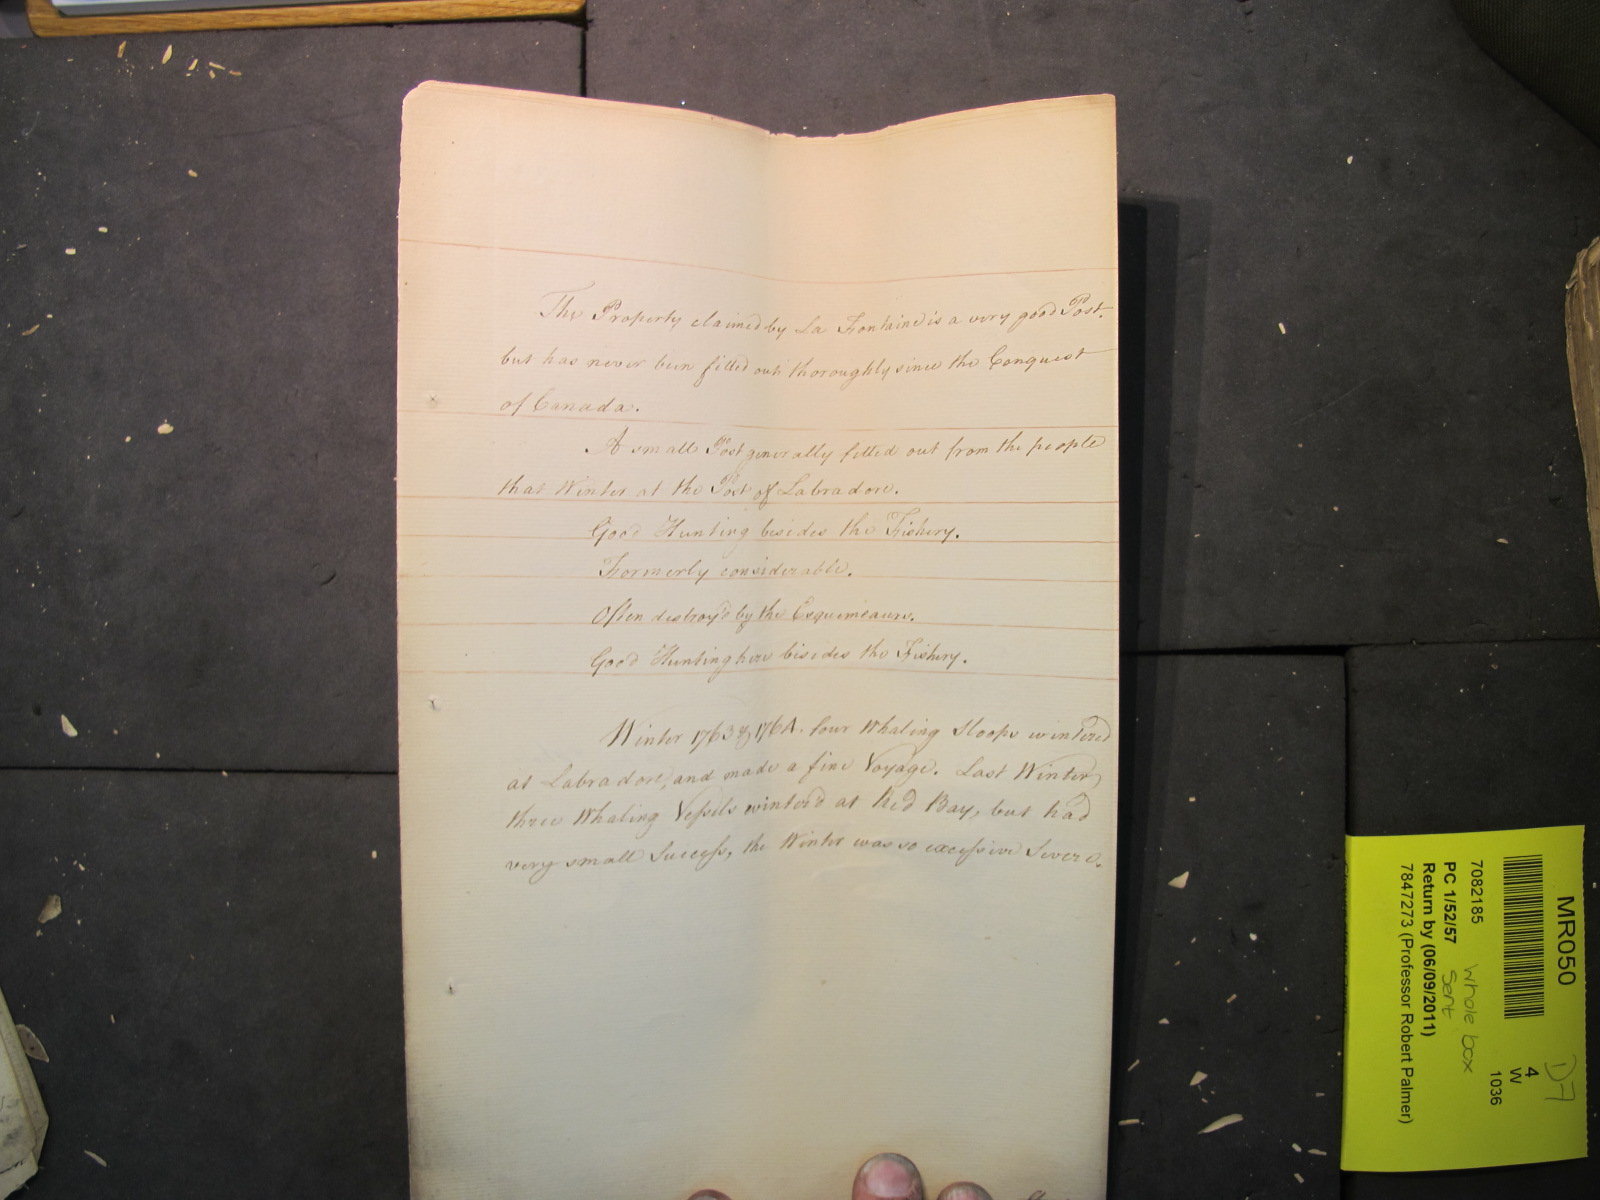 The Property claimed by La Fontaine is a very good Post.
but has never been fitted out thoroughly since the Conquest
of Canada.
A small Post generally fitted out from the people
that Winter at the Post of Labradore.
Good Hunting besides the Fishery.
Formerly considerable.
Often destroy'd by the Esquimeaux.
Good Hunting here besides the Fishery.
Winter 1763 & 1764. four Whaling Sloops wintered
at Labradore, and made a fine Voyage. Last Winter
three Whaling Vessels winter'd at Red Bay, but had
very small Success, the Winter was so excessive Severe.
MR050
D7
4
W
1036
7082185
whole box
PC 1/52/57
Sent
Return by (06/09/2011)
7847273 (Professor Robert Palmer)